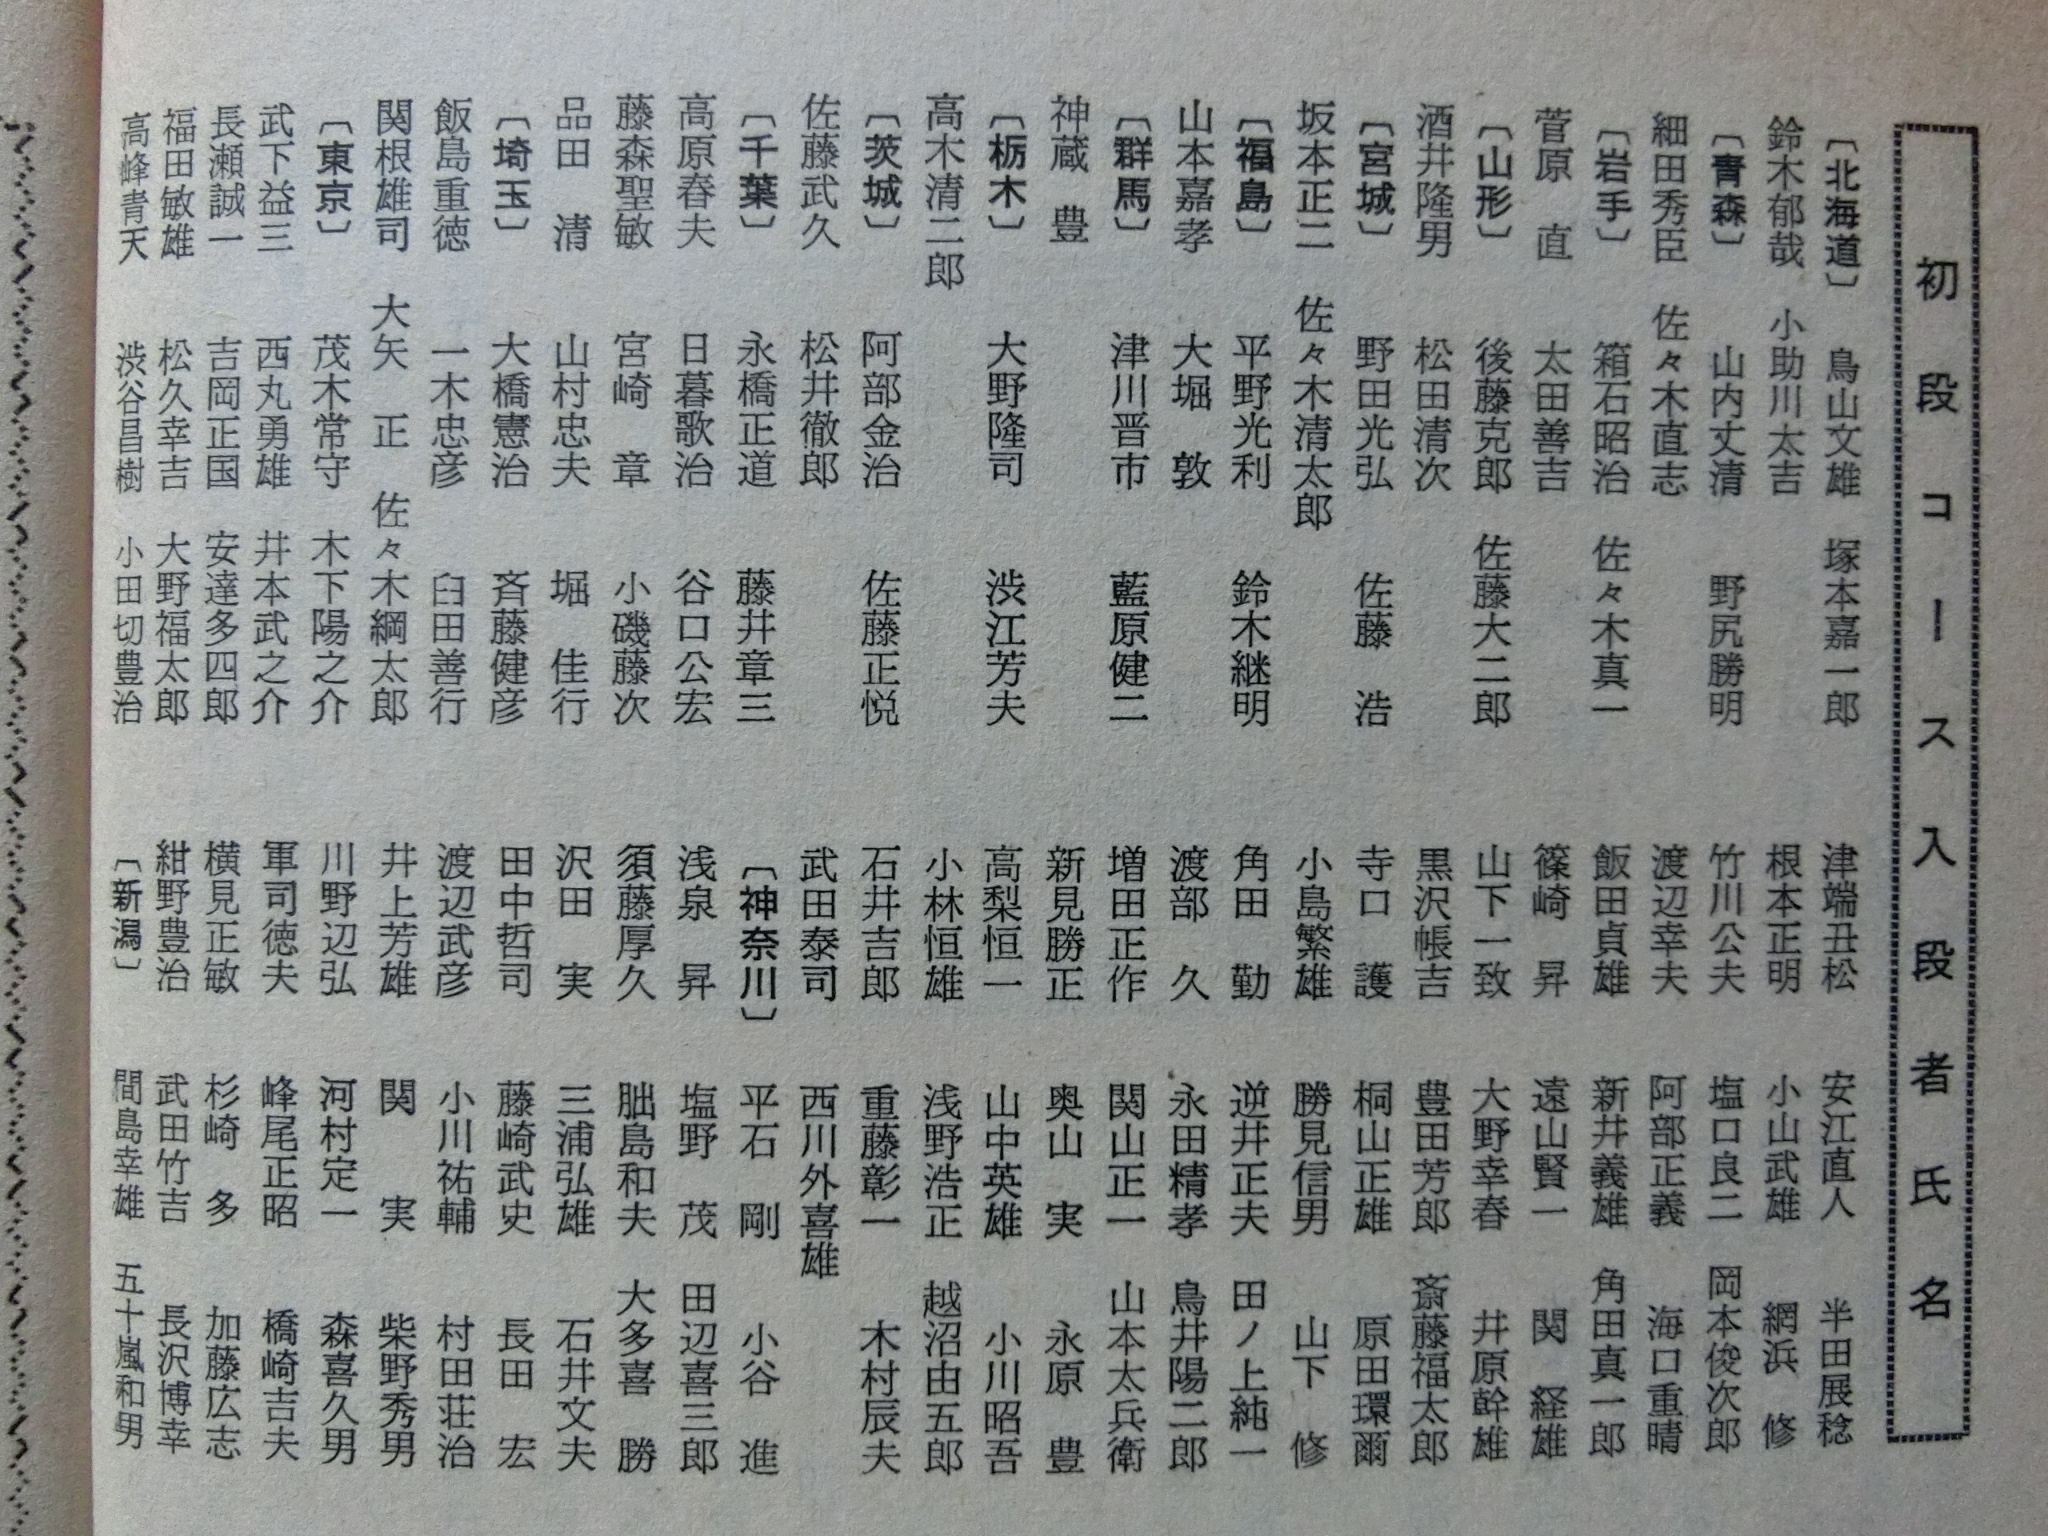 初段コース入段者氏名
〔北海道〕 鳥山文雄 塚本嘉一郎
鈴木郁哉 小助川太吉
〔青森〕 山内丈清 野尻勝明
細田秀臣 佐々木直志
〔岩手〕 箱石昭治 佐々木真一
菅原 直 太田善吉
〔山形〕 後藤克郎 佐藤大二郎
酒井隆男 松田清次
〔宮城〕 野田光弘 佐藤 浩
坂本正二 佐々木清太郎
〔福島〕 平野光利 鈴木継明
山本嘉孝 大堀 敦
〔群馬〕 津川晋市 藍原健二
神蔵 豊
〔栃木〕 大野隆司 渋江芳夫
高木清二郎
〔茨城〕 阿部金治 佐藤正悦
佐藤武久 松井徹郎
〔千葉〕 永橋正道 藤井章三
高原春夫 日暮歌治 谷口公宏
藤森聖敏 宮崎 章 小磯藤次
品田 清 山村忠夫 堀 佳行
〔埼玉〕 大橋憲治 斉藤健彦
飯島重徳 一木忠彦 臼田善行
関根雄司 大矢 正 佐々木綱太郎
〔東京〕 茂木常守 木下陽之介
武下益三 西丸勇雄 井本武之介
長瀬誠一 吉岡正国 安達多四郎
福田敏雄 松久幸吉 大野福太郎
高峰青天 渋谷昌樹 小田切豊治
津端丑松 安江直人 半田展稔
根本正明 小山武雄 網浜 修
竹川公夫 塩口良二 岡本俊次郎
渡辺幸夫 阿部正義 海口重晴
飯田貞雄 新井義雄 角田真一郎
篠崎 昇 遠山賢一 関 経雄
山下一致 大野幸春 井原幹雄
黒沢帳吉 豊田芳郎 斎藤福太郎
寺口 護 桐山正雄 原田環爾
小島繁雄 勝見信男 山下 修
角田 勤 逆井正夫 田ノ上純一
渡部 久 永田精孝 鳥井陽二郎
増田正作 関山正一 山本太兵衛
新見勝正 奥山 実 永原 豊
高梨恒一 山中英雄 小川昭吾
小林恒雄 浅野浩正 越沼由五郎
石井吉郎 重藤彰一 木村辰夫
武田泰司 西川外喜雄
〔神奈川〕 平石 剛 小谷 進
浅泉 昇 塩野 茂 田辺喜三郎
須藤厚久 朏島和夫 大多喜 勝
沢田 実 三浦弘雄 石井文夫
田中哲司 藤崎武史 長田 宏
渡辺武彦 小川祐輔 村田荘治
井上芳雄 関 実 柴野秀男
川野辺弘 河村定一 森喜久男
軍司徳夫 峰尾正昭 橋崎吉夫
横見正敏 杉崎 多 加藤広志
紺野豊治 武田竹吉 長沢博幸
〔新潟〕 間島幸雄 五十嵐和男